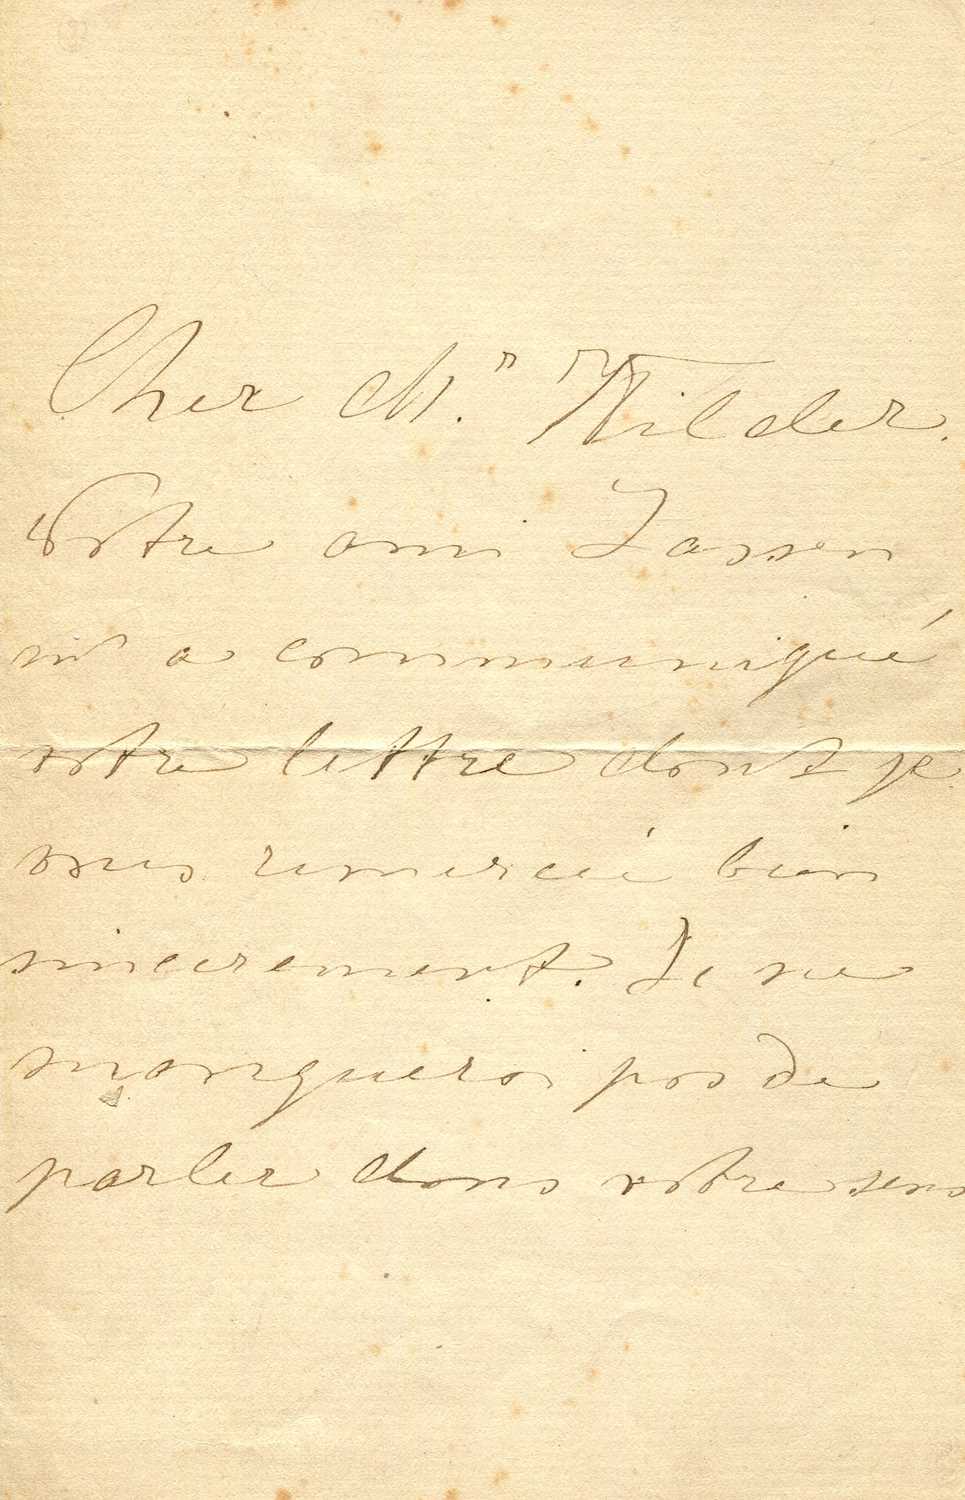 Cher Mr. Wilder.
Votre ami Lassen
m'a communiqué
votre lettre dont je
vous remercie bien
sincerement. Je ne
manquerai pas de
parler dans votre sens